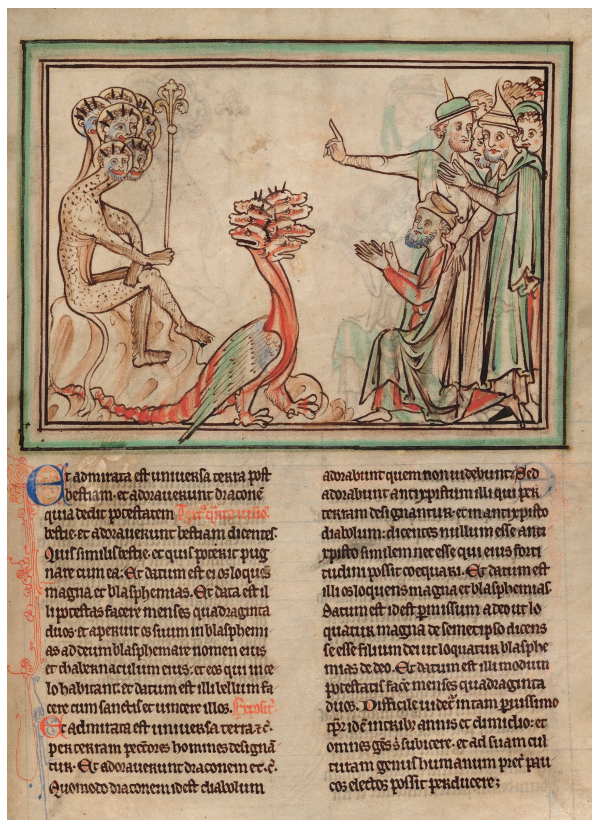 Et admirata est universa terra post
bestiam. et adoraverunt draconē
quia dedit potestatem
bestie. et adoraverunt bestiam dicentes.
Quis similis bestie. et quis poterit pug
nare cum ea. Et datum est ei os loquēs
magna et blasphemias. Et data est il
li potestas facere menses quadraginta
duos. et aperuit os suum in blasphemi
as ad deum blasphemare nomen eius
et thabernaculum eius. et eos qui in ce
lo habitant. et datum est illi bellum fa
cere cum sanctis et vincere illos.
Et admirata est universa terra ⁊ c̄.
per terram peccatores homines designā
tur. Et adoraverunt draconem et. c̄.
Quomodo draconem id est diabolum
adorabunt quem non videbunt. Sed
adorabunt antixpistum illi qui per
terram designantur. et in antixpisto
diabolum. dicentes nullum esse anti
xpisto similem nec esse qui eius forti
tudini possit coequari. Et datum est
illi os loquens magna et blasphemias.
Datum est id est permissum a deo ut lo
quatur magna de semetipso dicens
se esse filium dei ut loquatur blasphe
mias de deo. Et datum est illi
potestatis facere menses quadraginta
duos. Difficile videt̄ in tam
annis et dimidio. et
omnes subicere. et ad suam cul
turam genus humanum preter pau
cos electos possit perducere;